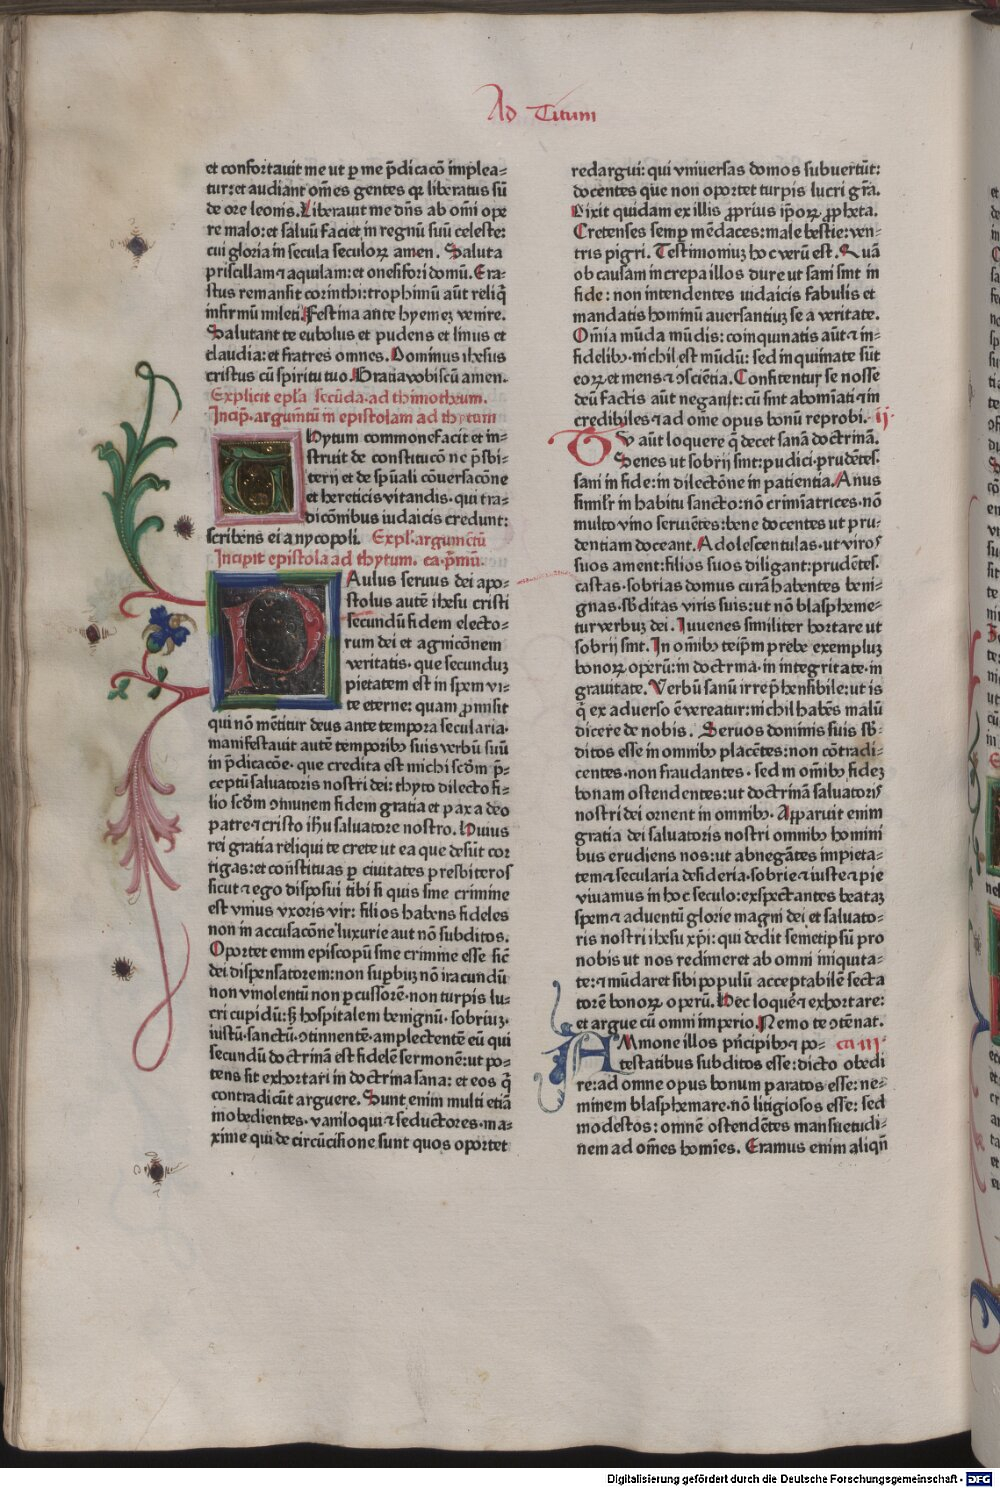 Ad Titum
et confortauit me ut p me p̄dicacō implea-
tur: et audiant om̄es gentes qꝛ liberatus sū
de ore leonis. Liberauit me dn̄s ab om̄i ope
re malo: et saluū faciet in regnū suū celeste:
cui gloria in secula seculoꝝ amen. Saluta
priscillam ⁊ aquilam: et onesifori domū. Era-
stus remansit corinthi: trophimū aūt reliq̄
infirmū mileti. Festina ante hyemeȝ venire.
Salutant te eubolus et pudens et linus et
claudia: et fratres omnes. Dominus ihesus
cristus cū spiritu tuo. Gratia vobiscū amen.
Explicit epl̄a secūda ad thimotheum.
Incip̄. argumn̄tū in epistolam ad thytum
Thytum commonefacit et in-
struit de constitucōne p̄sbi-
terij et de sp̄uali cōuersacōne
et hereticis vitandis. qui tra-
dicōnibus iudaicis credunt:
scribens ei a nycopoli. Expl̄. argumētū
Incipit epistola ad thytum. ca. p̄mū.
PAulus seruus dei apo-
stolus autē ihesu cristi
secundū fidem electo-
rum dei et agnicōnem
veritatis. que secunduȝ
pietatem est in spem vi-
te eterne: quam ꝓmisit
qui nō mētitur deus ante tempora secularia.
manifestauit autē temporibꝫ suis verbū suū
in p̄dicacōe. que credita est michi scd̄m p̄-
ceptū saluatoris nostri dei: thyto dilecto fi-
lio scd̄m ꝯmunem fidem gratia et pax a deo
patre ⁊ cristo ih̄u saluatore nostro. Huius
rei gratia reliqui te crete ut ea que desūt cor
rigas: et constituas p ciuitates presbiteros
sicut ⁊ ego disposui tibi si quis sine crimine
est vnius vxoris vir: filios habens fideles
non in accusacōne luxurie aut nō subditos.
Oportet enim episcopū sine crimine esse sic̄
dei dispensatorem: non supbuȝ nō iracundū
non vinolentū non pcussorē. non turpis lu-
cri cupidū: sȝ hospitalem benignū. sobriuȝ.
iustū. sanctū. ꝯtinnentē. amplectentē eū qui
secundū doctrinā est fidelē sermonē: ut po-
tens sit exhortari in doctrina sana: et eos q̄
contradicūt arguere. Sunt enim multi etiā
inobedientes. vaniloqui ⁊ seductores. ma-
xime qui de circūcisione sunt quos oportet
redargui: qui vniuersas domos subuertūt:
docentes que non oportet turpis lucri gr̄a.
Dixit quidam ex illis ꝓprius ip̄oꝝ ꝓpheta.
Cretenses semp mēdaces: male bestie: ven-
tris pigri. Testimoniuȝ hoc verū est. Quā
ob causam increpa illos dure ut sani sint in
fide: non intendentes iudaicis fabulis et
mandatis hominū auersantiuȝ se a veritate.
Om̄ia mūda mūdis: coinquinatis aūt ⁊ in-
fidelibꝫ. nichil est mūdū: sed inquinate sūt
eoꝝ et mens ⁊ ꝯsciētia. Confitentur se nosse
deū factis aūt negant: cū sint abomīati ⁊ in
credibiles ⁊ ad om̄e opus bonū reprobi. ij.
TV aūt loquere q̄ decet sanā doctrinā.
Senes ut sobrij sint: pudici. prudētes.
sani in fide: in dilectōne in patientia. Anus
simil̄r in habitu sancto: nō crimīatrices. nō
multo vino seruiētes: bene docentes ut pru-
dentiam doceant. Adolescentulas. ut viros
suos ament: filios suos diligant: prudētes.
castas. sobrias domus curā habentes beni-
gnas. sb̄ditas viris suis: ut nō blaspheme-
tur verbuȝ dei. Iuuenes similiter hortare ut
sobrij sint. In om̄ibꝫ teip̄m prebe exempluȝ
bonoꝝ operū: in doctrina. in integritate. in
grauitate. Verbū sanū irrep̄hensibile: ut is
q̄ ex aduerso ē vereatur: nichil habēs malū
dicere de nobis. Seruos dominis suis sb̄-
ditos esse in omnibꝫ placētes: non cōtradi-
centes. non fraudantes. sed in om̄ibꝫ fideȝ
bonam ostendentes: ut doctrinā saluatoris
nostri dei ornent in omnibꝫ. Apparuit enim
gratia dei saluatoris nostri omnibꝫ homini
bus erudiens nos: ut abnegātes impieta-
tem ⁊ secularia desideria. sobrie ⁊ iuste ⁊ pie
viuamus in hoc seculo: exspectantes beataȝ
spem ⁊ aduentū glorie magni dei et saluato-
ris nostri ihesu xp̄i: qui dedit semetipsū pro
nobis ut nos redimeret ab omni iniquita-
te: ⁊ mūdaret sibi populū acceptabilē secta
torē bonoꝝ operū. Hec loquē ⁊ exhortare:
et argue cū omni imperio. Nemo te ꝯtēnat.
AMmone illos pn̄cipibꝫ ⁊ po- ca. iij.
testatibus subditos esse: dicto obedi
re: ad omne opus bonum paratos esse: ne-
minem blasphemare. nō litigiosos esse: sed
modestos: omnē ostendētes mansuetudi-
nem ad om̄es homīes. Eramus enim aliqn̄
Digitalisierung gefördert durch die Deutsche Forschungsgemeinschaft - DFG